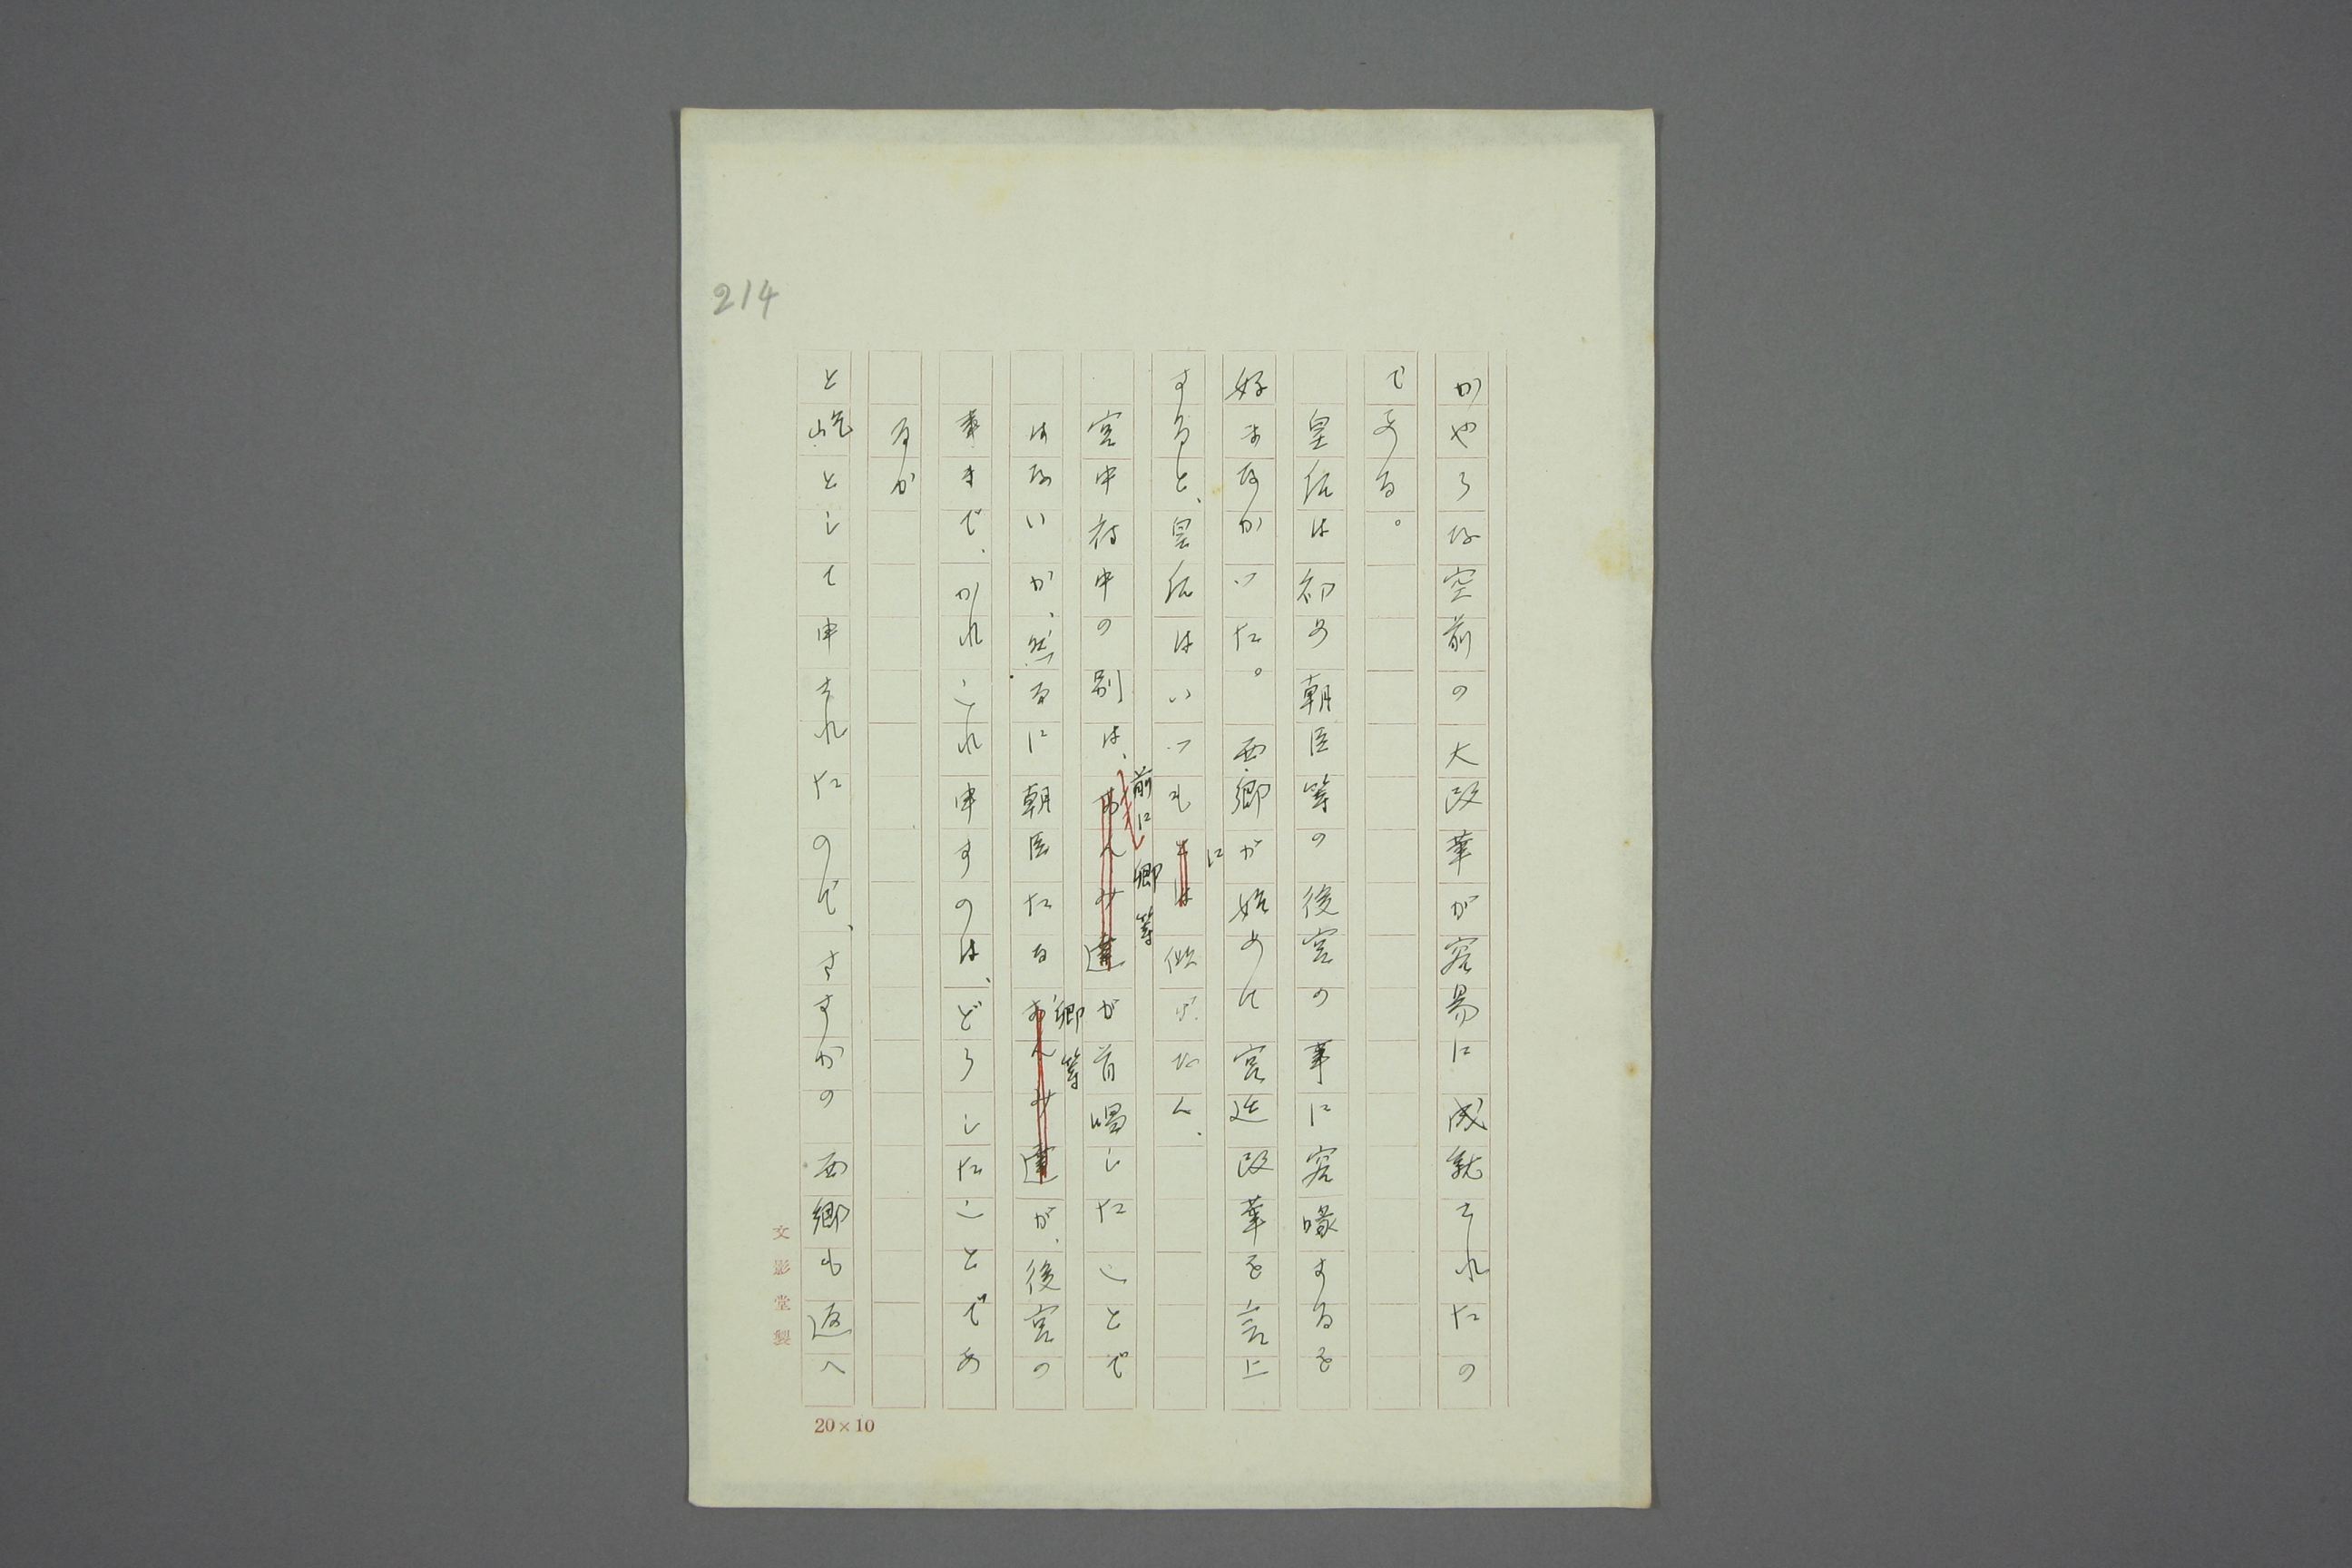 214
かやうな空前の大改革が容易に成就されたの
である。
皇后は初め朝臣等の後宮の事に容喙するを
好まなかつた。西郷が始めて宮廷改革を言上
すると、皇后はいつもに似げなく、
宮中府中の別は、前に卿等が首唱したことで
はないか、然るに朝臣たる卿等が、後宮の
事まで、かれこれ申すのは、どうしたことであ
るか
と屹として申されたので、さすがの西郷も返へ
文影堂製
20×10